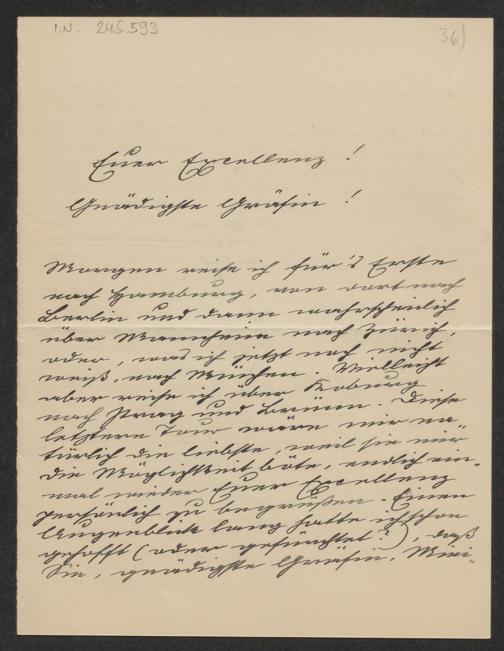 I.N. 245.593
36)
Euer Excellenz!
Gnädigste Gräfin!
Morgen reise ich für's Erste
nach Hamburg, von dort nach
Berlin und dann wahrscheinlich
über Mannheim nach Zürich,
oder, was ich jetzt noch nicht
weiß, nach München. Vielleicht
aber reise ich über Koburg
nach Prag und Brünn. Diese
letztere Tour wäre mir na-
türlich die liebste, weil sie mir
die Möglichkeit böte, endlich ein-
mal wieder Euer Excellenz
persönlich zu begrüßen. Einen
Augenblick lang hatte ich schon
gehofft (oder gefürchtet?), daß
Sie, gnädigste Gräfin, Mini-